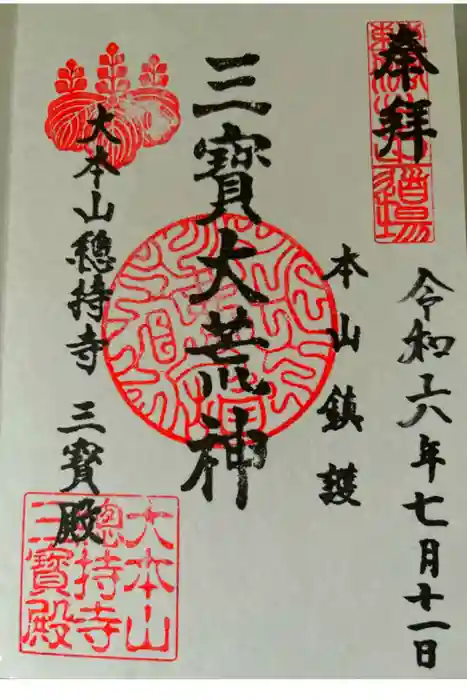 奉拝
道場
令和六年七月十一日
本山鎮護
三寶大荒神
大本山總持寺 三寶殿
大本山
總持寺
三寶殿